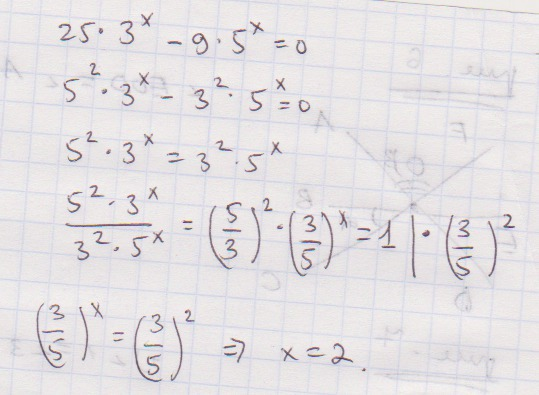 25 · 3^x − 9 · 5^x = 0
5^2 · 3^x − 3^2 · 5^x = 0
5^2 · 3^x = 3^2 · 5^x
(5^2 · 3^x)/(3^2 · 5^x) = (5/3)^2 · (3/5)^x = 1 | · (3/5)^2
(3/5)^x = (3/5)^2 ⇒ x = 2.